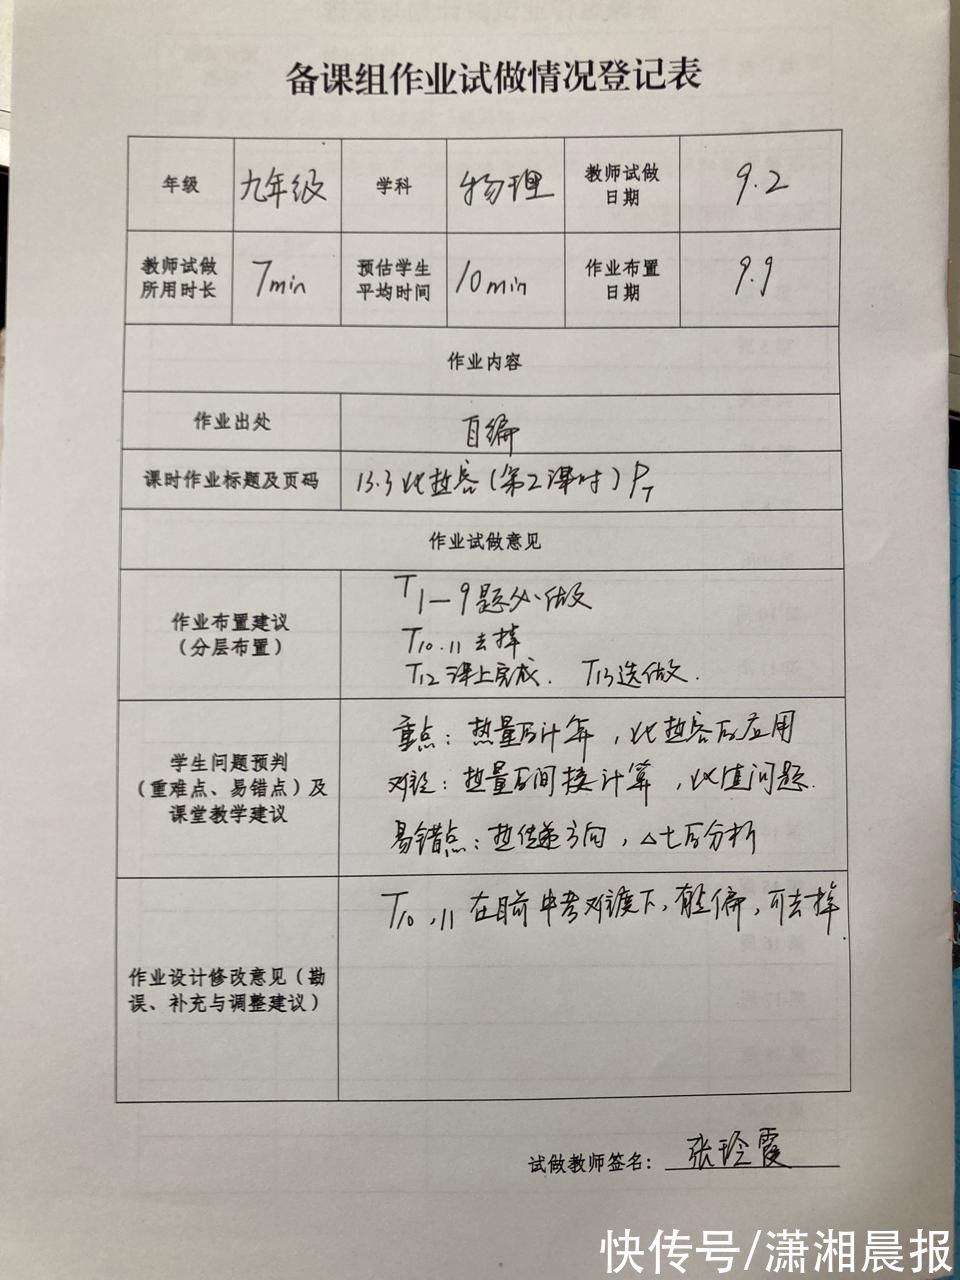 备课组作业试做情况登记表
年级 九年级 学科 物理 教师试做日期 9.2
教师试做所用时长 7min 预估学生平均时间 10min 作业布置日期 9.9
作业内容
作业出处 自编
课时作业标题及页码 13.3比热容(第2课时) P7
作业试做意见
作业布置建议
(分层布置)
T1—9题必做
T10.11去掉
T12课上完成. T13选做.
学生问题预判
(重难点、易错点)及
课堂教学建议
重点:热量的计算,比热容的应用
难点:热量的间接计算,比值问题.
易错点:热传递方向,△t的分析
作业设计修改意见(勘
误、补充与调整建议)
T10,11在目前中考难度下,有些偏,可去掉.
试做教师签名:张玲霞
快传号/潇湘晨报